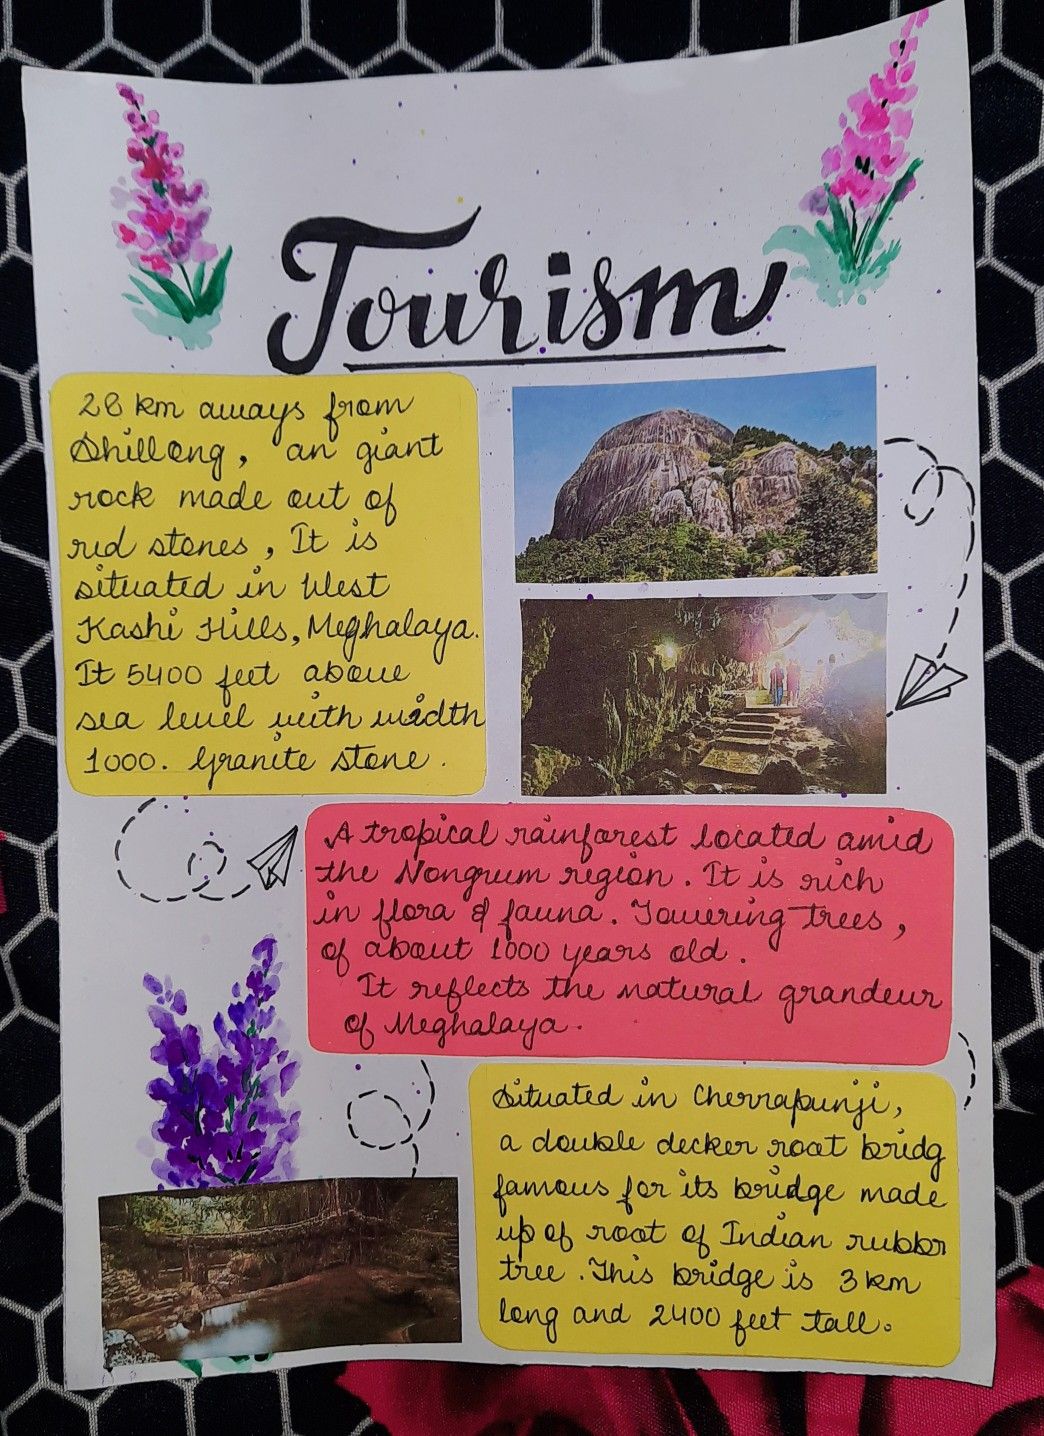 Tourism
28 km aways from
Shillong, an giant
rock made out of
red stones, It is
situated in West
Kashi Hills, Meghalaya.
It 5400 feet above
sea level with width
1000. Granite stone.
A tropical rainforest located amid
the Nongrum region. It is rich
in flora & fauna. Towering trees,
of about 1000 years old.
It reflects the natural grandeur
of Meghalaya.
Situated in Cherrapunji,
a double decker root bridg
famous for its bridge made
up of root of Indian rubbr
tree. This bridge is 3 km
long and 2400 feet tall.